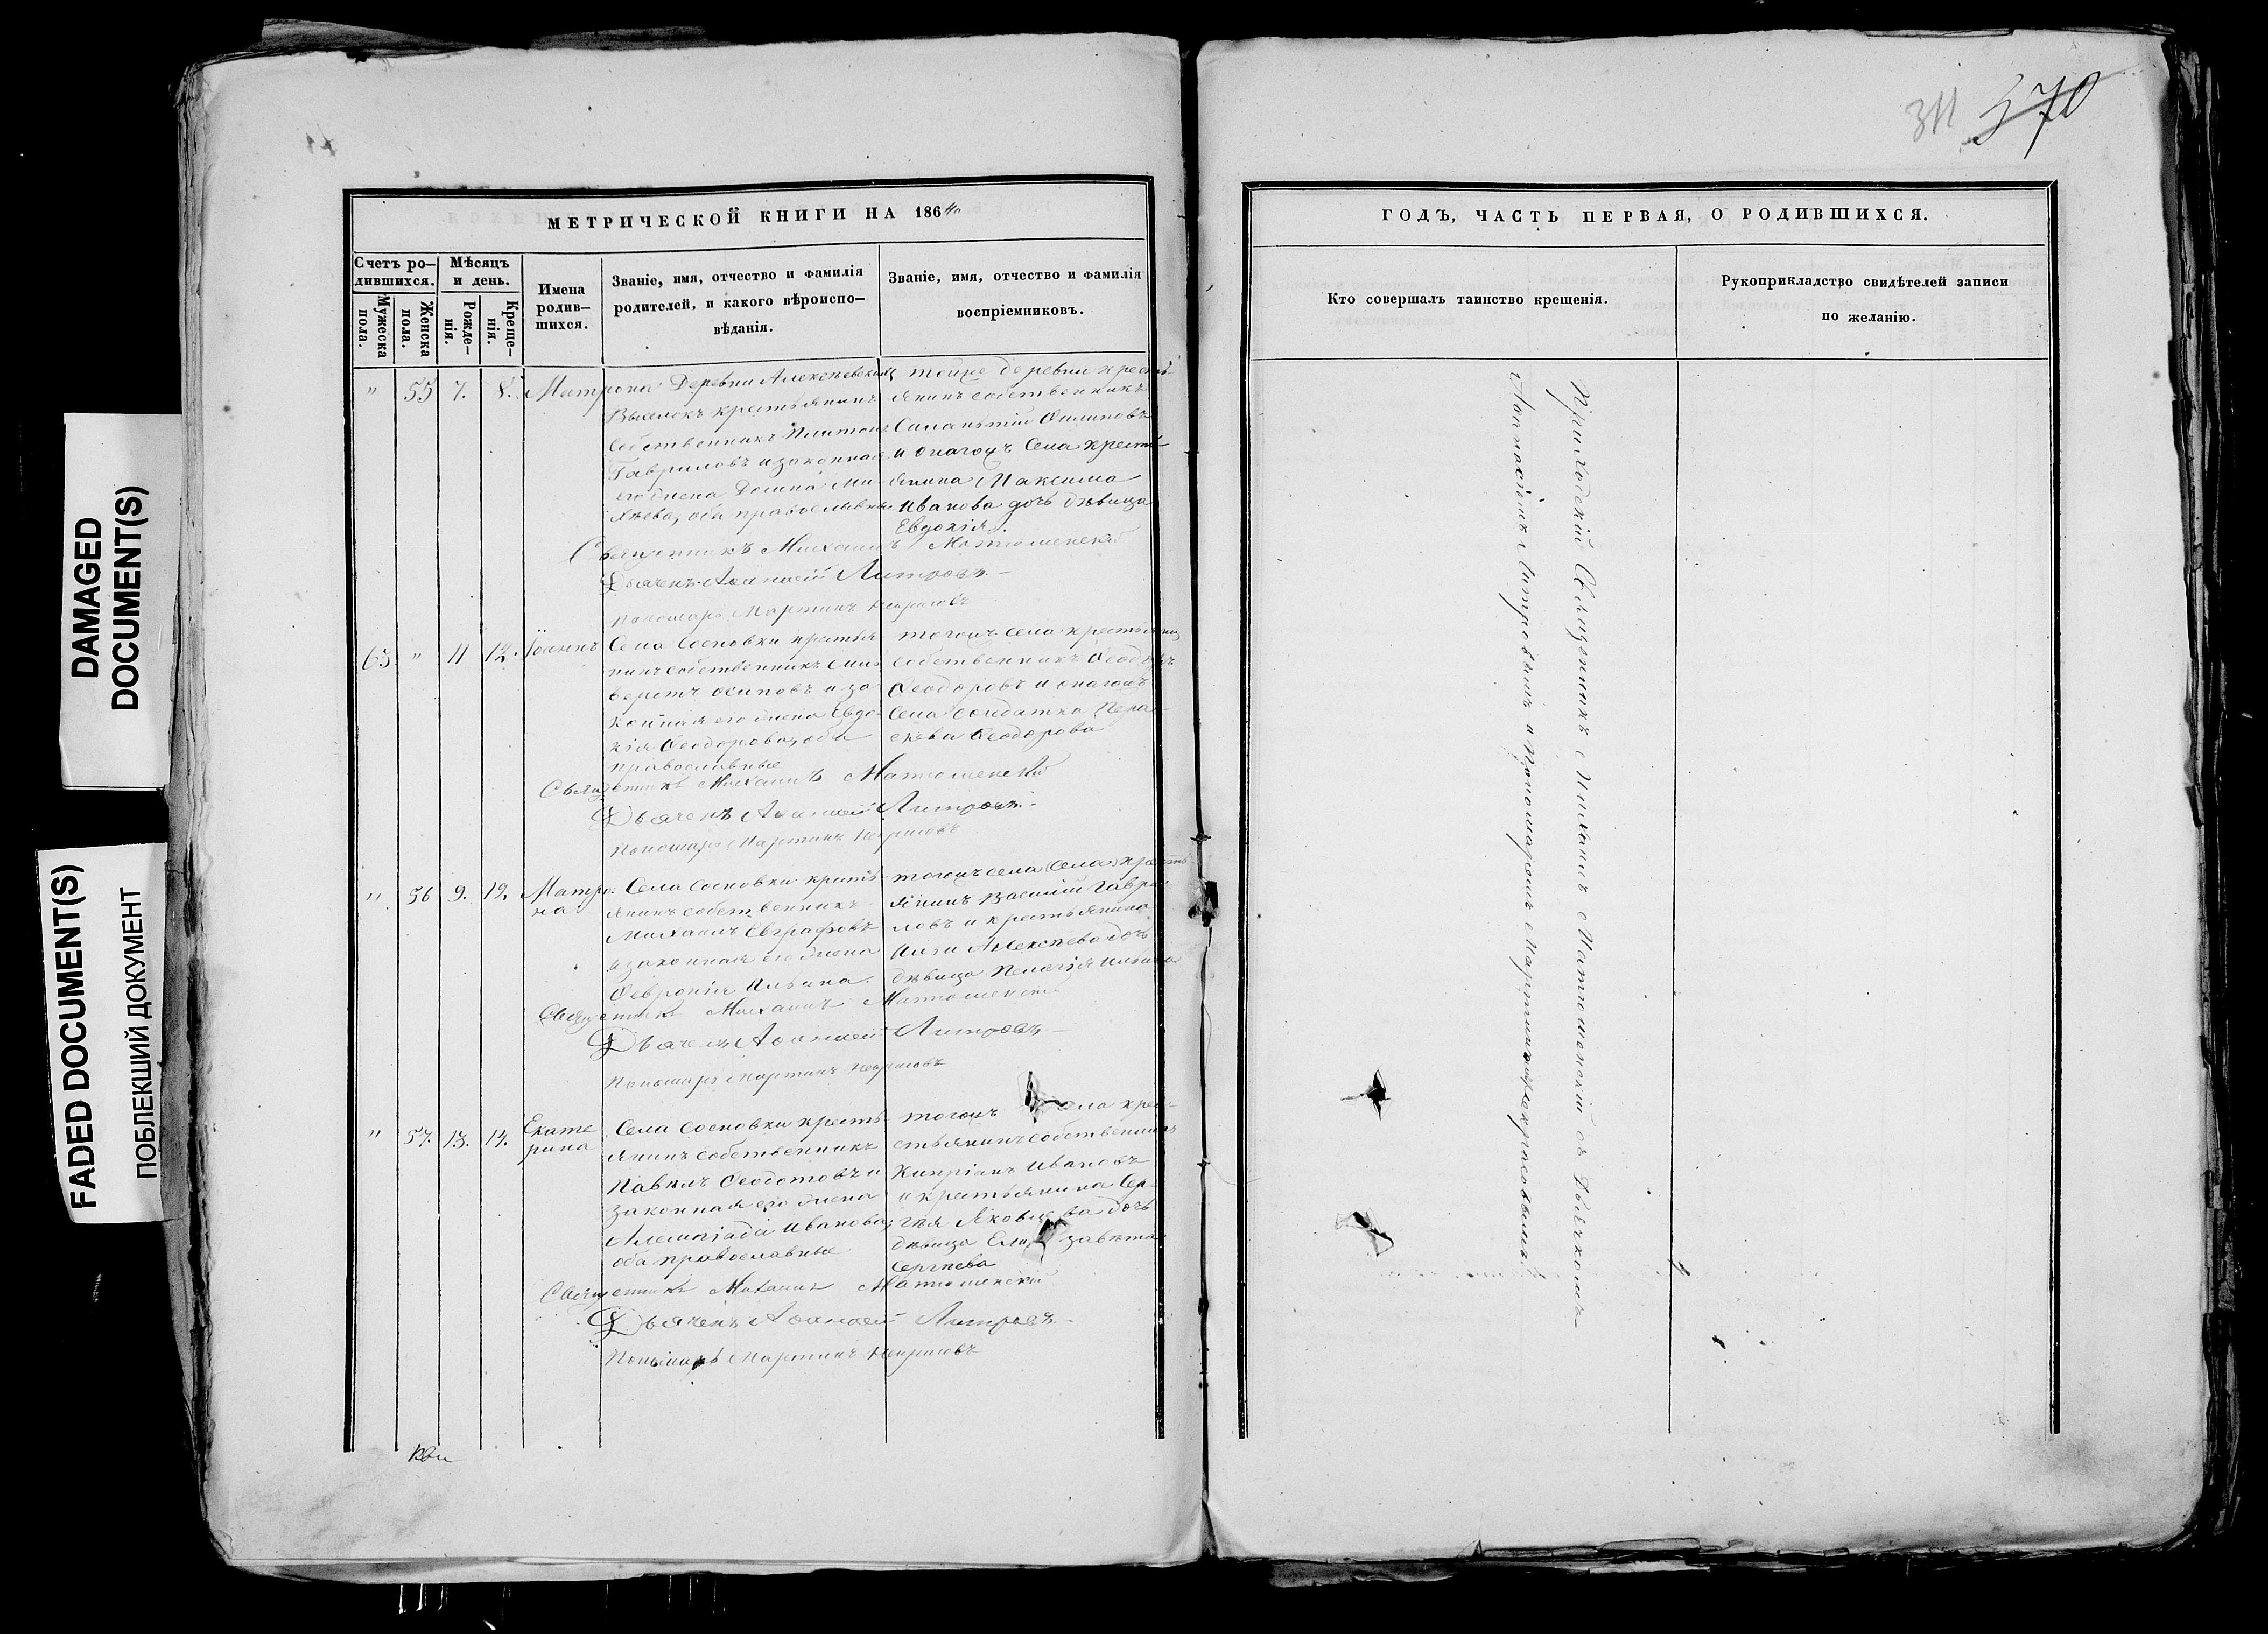 DAMAGED
DOCUMENT(S)
FADED DOCUMENT(S)
ПОБЛЕКШИЙ ДОКУМЕНТ
МЕТРИЧЕСКОЙ КНИГИ НА 1864
Счетъ ро-
дившихся.
Мужеска
пола.
Женска
пола.
Мѣсяцъ
и день.
Рожде-
нія.
Креще-
нія.
Имена
родив-
шихся.
Званіе, имя, отчество и фамилія
родителей, и какого вѣроиспо-
вѣданія.
Званіе, имя, отчество и фамилія
воспріемниковъ.
" 55 7. 8. Матрона
Деревни Алексѣевскихъ
Выселокъ крестьянинъ
собственникъ Платонъ
Гавриловъ и законная
его жена Домна Ми-
хѣева, оба православные
тойже деревни кресть-
янинъ собственникъ
Филиповъ
и онагожъ села кресть-
янина Максима
Иванова дочь дѣвица
Евдокія.
Священникъ Михаилъ Матюшенскій
Дьячекъ Аѳанасій Литровъ
Пономарь Мартинъ Некрасовъ
63. " 11 12. Іоаннъ
Села Сосновки крестья-
нинъ собственникъ Сили-
верстъ Осиповъ и за-
конная его жена Евдо-
кія Ѳеодорова, оба
православные
тогожъ села крестьянинъ
собственникъ Ѳеодоръ
Ѳеодоровъ и онагожъ
села солдатка Пара-
скева Ѳеодорова
Священникъ Михаилъ Матюшенскій
Дьячекъ Аѳанасій Литровъ
Пономарь Мартинъ Некрасовъ
" 56 9. 12. Матро-
на
Села Сосновки кресть-
янинъ собственникъ
Михаилъ Евграфовъ
и законная его жена
Ѳевронія Ильина.
тогожъ села (села) кресть-
янинъ Василій Гаври-
ловъ и крестьянина
Ильи Алексѣева дочь
дѣвица Пелагія Ильина
Священникъ Михаилъ Матюшенскій
Дьячекъ Аѳанасій Литровъ
Пономарь Мартинъ Некрасовъ
" 57. 13. 14. Екате
рина
Села Сосновки кресть-
янинъ собственникъ
Павелъ Ѳеодотовъ и
законная его жена
Иванова,
оба православные
тогожъ села кре-
стьянинъ собственникъ
Кипріанъ Ивановъ
и крестьянина Сер-
гѣя Яковлева дочь
дѣвица Елизавета
Сергѣева
Священникъ Михаилъ Матюшенскій
Дьячекъ Аѳанасій Литровъ
Пономарь Мартинъ Некрасовъ
311 370
ГОДЪ, ЧАСТЬ ПЕРВАЯ, О РОДИВШИХСЯ.
Кто совершалъ таинство крещенія.
Рукоприкладство свидѣтелей записи
по желанію.
Приходскій Священникъ Михаилъ Матюшенскій съ Дьячкомъ
Аѳанасіемъ Литровымъ и Пономаромъ Мартиномъ Некрасовымъ.